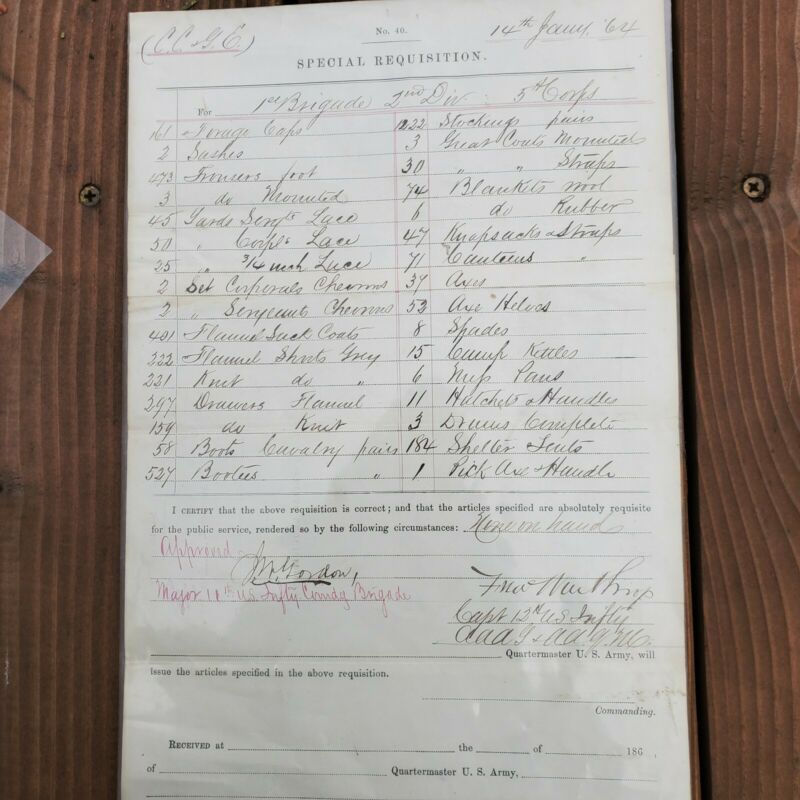 (C. C. & G. E.)
No. 40.
14th Jany. '64
SPECIAL REQUISITION.
For 1st Brigade 2nd Div. 5th Corps
161 Forage Caps
2 Sashes
473 Trousers foot
3 do Mounted
45 Yards Sergts Lace
50 " Corpls Lace
25 " 3/4 inch Lace
2 Set Corporals Chevrons
2 " Sergeants Chevrons
401 Flannel Sack Coats
222 Flannel Shirts Grey
221 Knit do "
297 Drawers Flannel
159 do Knit
58 Boots Cavalry pairs
527 Bootees "
1222 Stockings pairs
3 Great Coats Mounted
30 " " Straps
74 Blankets wool
6 do Rubber
47 Knapsacks & Straps
71 Canteens "
37 Axes
53 Axe Helves
8 Spades
15 Camp Kettles
6 Mess Pans
11 Hatchets & Handles
3 Drums Complete
184 Shelter Tents
1 Pick Axe & Handle
I CERTIFY that the above requisition is correct; and that the articles specified are absolutely requisite
for the public service, rendered so by the following circumstances: None on hand
Approved
Gordon,
Major 11th U.S. Infty Comdg Brigade
Fred Winthrop
Capt 12th U.S. Infty
Quartermaster U. S. Army, will
issue the articles specified in the above requisition.
Commanding.
RECEIVED at the of 186
of Quartermaster U. S. Army,